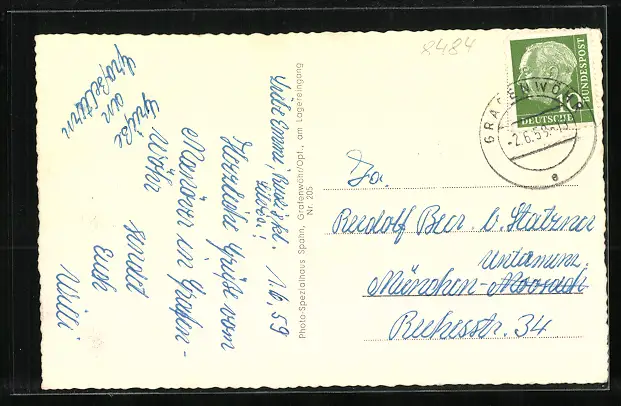 8484
BUNDESPOST
10
DEUTSCHE
GRAFENWÖHR
-2.6.59
e
Photo-Spezialhaus Spahn, Grafenwöhr/Opf., am Lagereingang
Nr. 205
Liebe Emma,
1.6.59
Herzliche Grüße vom
Manöver in Grafen-
wöhr
sendet
Euch
Willi
Grüße
an
Großeltern
Fa.
Rudolf
München-Moosach
34